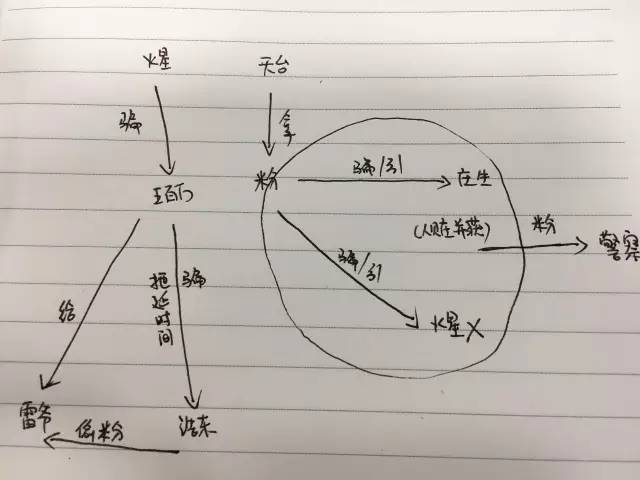 火星
天台
骗
拿
王百万
粉
骗/引
庄生
(人赃并获)
粉
警察
骗/引
火星X
给
拖延时间
骗
雷爷
浩东
假粉